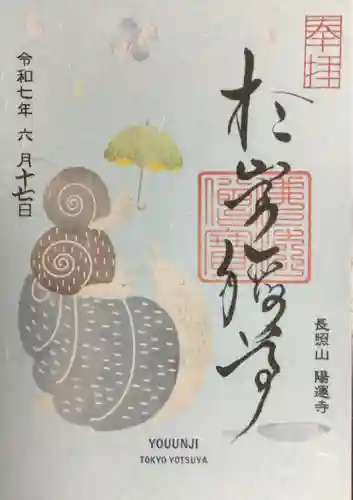 奉拝
於岩稲荷
長照山 陽運寺
令和七年 六月十七日
YOUUNJI
TOKYO YOTSUYA